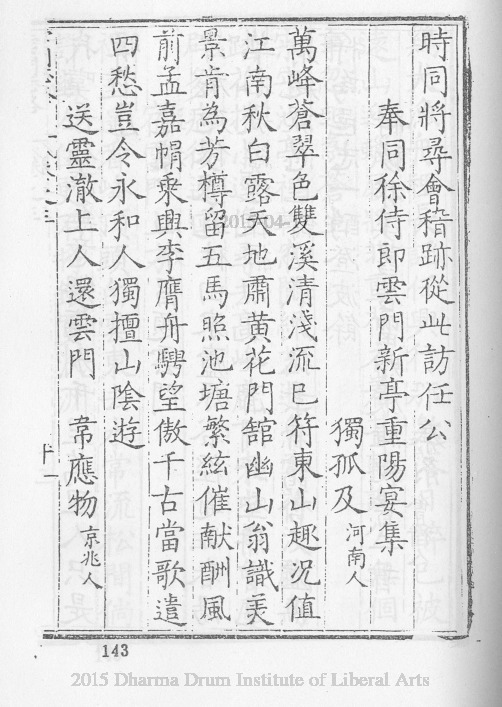 時同將尋會稽跡從此訪任公
奉同徐侍郎雲門新亭重陽宴集
獨孤及河南人
萬峰蒼翠色雙溪清淺流巳符東山趣況值
江南秋白露天地肅黃花門館幽山翁識美
景肯為芳樽留五馬照池塘繁絃催献酬風
前孟嘉帽乘興李膺舟騁望傲千古當歌遣
四愁豈令永和人獨擅山陰遊
送靈澈上人還雲門 韋應物京兆人
十一
143
2015 Dharma Drum Institute of Liberal Arts